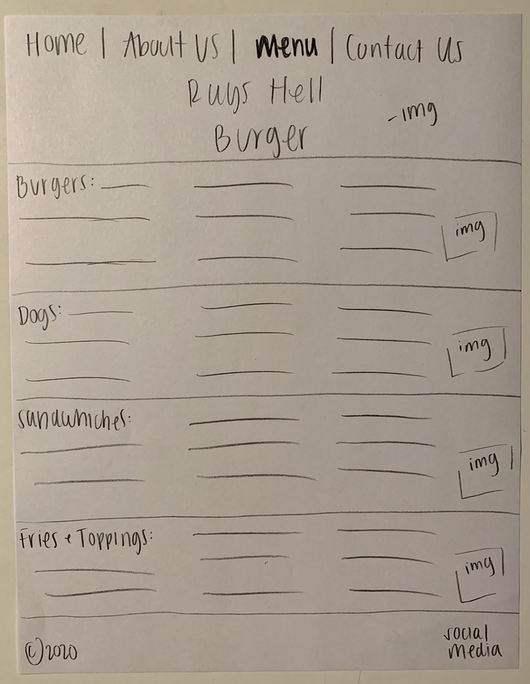 Home | About Us | Menu | Contact Us
Rays Hell
Burger
-img
Burgers:
img
Dogs:
img
Sandwhiches:
img
Fries + Toppings:
img
©2020
social
media